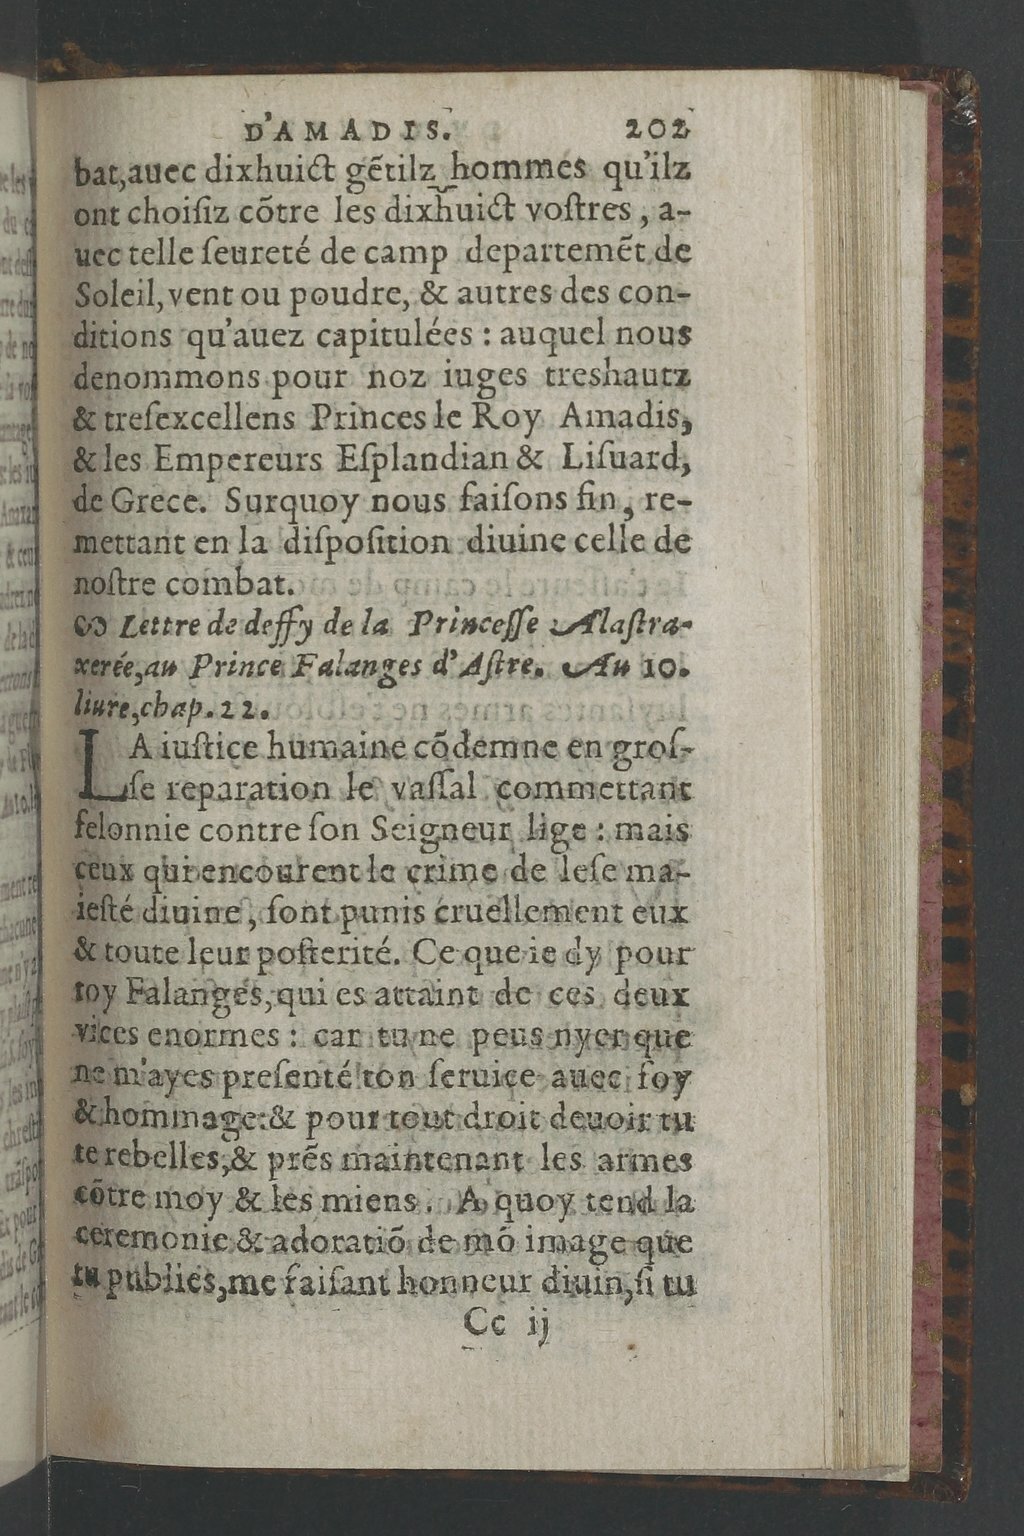 D'AMADIS. 202
bat,auec dixhuict gẽtilz hommes qu'ilz
ont choiſiz cõtre les dixhuict voſtres, a-
uec telle ſeureté de camp departemẽt de
Soleil, vent ou poudre, & autres des con-
ditions qu'auez capitulées : auquel nous
denommons pour noz iuges treshautz
& treſexcellens Princes le Roy Amadis,
& les Empereurs Eſplandian & Liſuard,
de Grece. Surquoy nous faiſons fin, re-
mettant en la diſpoſition diuine celle de
noſtre combat.
Lettre de deffy de la Princeſſe Alaſtra-
xerée,au Prince Falanges d'Aſtre. Au 10.
liure,chap.22.
LA iuſtice humaine cõdemne en groſ-
ſe reparation le vaſſal commettant
felonnie contre ſon Seigneur lige : mais
ceux qui encourent le crime de leſe ma-
ieſté diuine, ſont punis cruellement eux
& toute leur poſterité. Ce que ie dy pour
toy Falanges, qui es attaint de ces deux
vices enormes : car tu ne peus nyer que
ne m'ayes preſenté ton ſeruice auec foy
& hommage:& pour tout droit deuoir tu
te rebelles,& prẽs maintenant les armes
cõtre moy & les miens. A quoy tend la
ceremonie & adoratiõ de mõ image que
tu publies,me faiſant honneur diuin,ſi tu
Cc ij